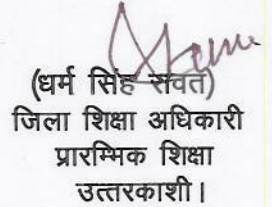 (धर्म सिंह रावत)
जिला शिक्षा अधिकारी
प्रारम्भिक शिक्षा
उत्तरकाशी।